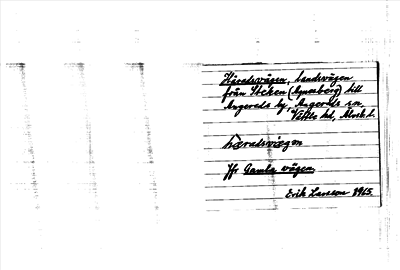 Häradsvägen, landsvägen
från Steken (Agneberg) till
Angereds by, Angereds sn,
Vättle hd, Älvsb. l.
hæradsvægen
Jfr Gamla vägen.
Erik Larsson 1965.